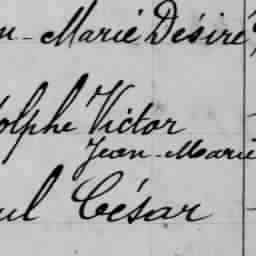 n-Marie Désiré
olphe Victor
Jean-Marie
ul César